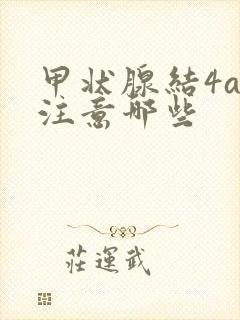 甲状腺結4a
注意哪些
莊運武